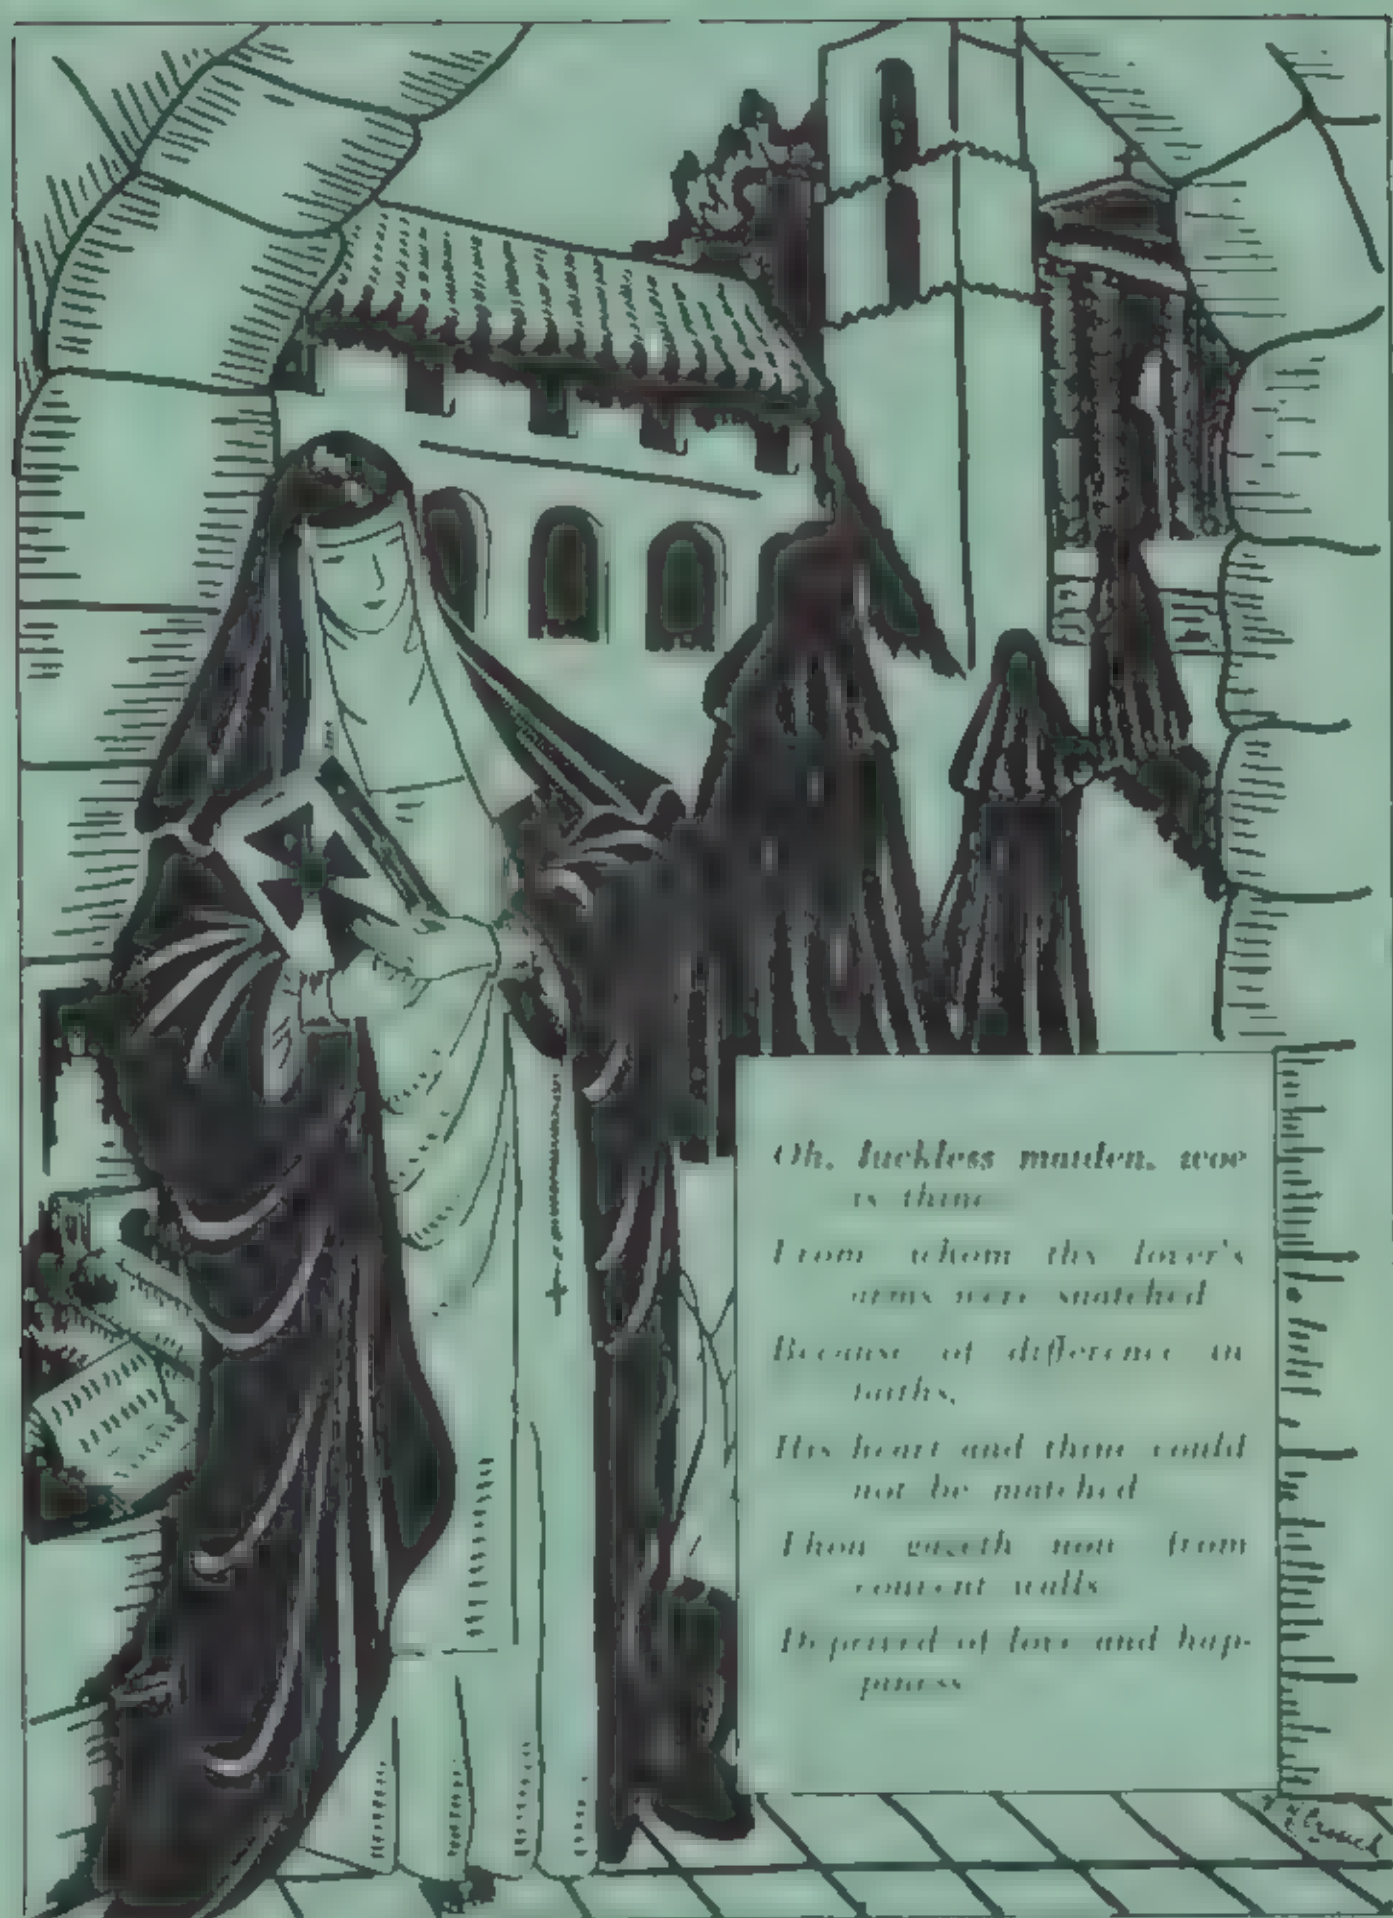 Oh, luckless maiden, woe
is thine
From whom thy lover's
arms were snatched
Because of difference in
faiths,
His heart and thine could
not be matched
Thou gazeth now from
convent walls
Deprived of love and hap-
piness